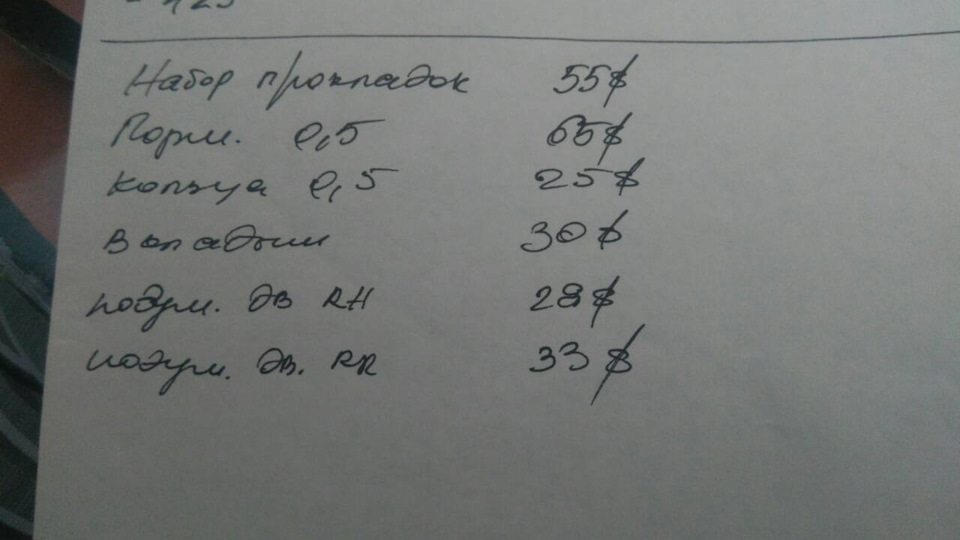 - 125
Набор прокладок 55$
Порш. 0,5 65$
Кольца 0,5 25$
Вкладыши 30$
подуш. дв RH 28$
подуш. дв. RR 33$